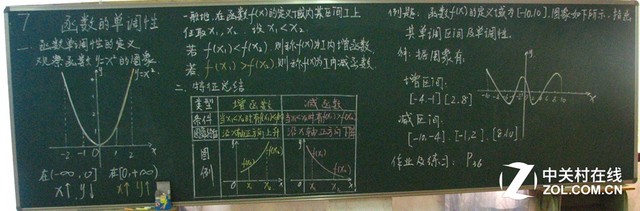 7
函数的单调性
一、函数单调性的定义
观察函数y=x²的图象
y
y=x²
-2 -1 0 1 2 x
在(-∞,0] 在[0,+∞)
x↑ y↓ x↑ y↑
一般地,在函数f(x)的定义域内某区间I上
任取x₁、x₂, 设x₁<x₂
若 f(x₁)<f(x₂),则称f(x)为I内增函数
若 f(x₁)>f(x₂),则称f(x)为I内减函数
二、特征总结
类型 增函数 减函数
条件
沿x轴正方向上升 沿x轴正方向下降
图例
y
f(x₂)
f(x₁)
0 x₁ x₂ x
y
f(x₁)
f(x₂)
0 x₁ x₂ x
例题: 函数f(x)的定义域为[-10,10],图象如下所示,指出
其单调区间及单调性.
解:据图象有:
增区间:
[-4,-1] [2,8]
减区间:
[-10,-4] [-1,2] [8,10]
作业及练习: P36
Z 中关村在线
ZOL.COM.CN